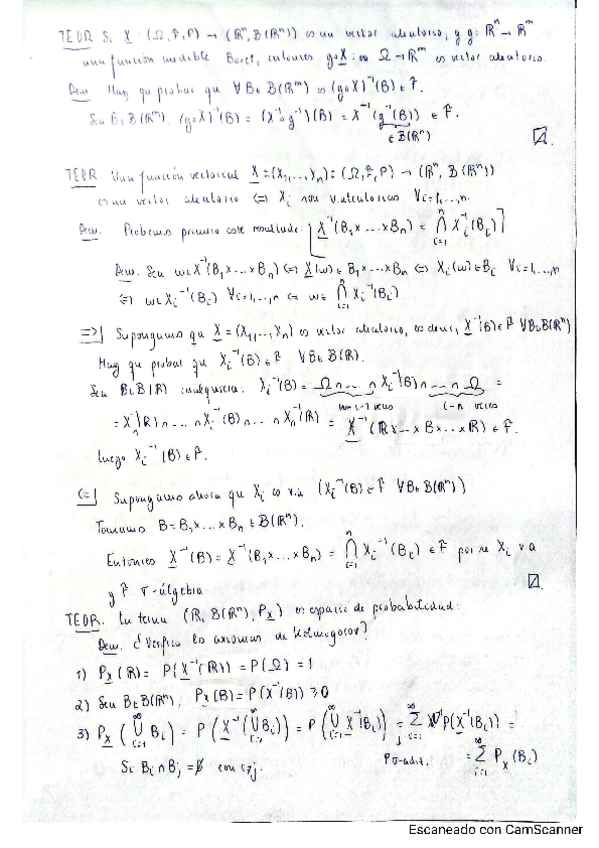 TEOR Si X : (Ω, F, P) → (ℝⁿ, B(ℝⁿ)) es un vector aleatorio, y g: ℝⁿ → ℝᵐ
una función medible Borel, entonces g∘X : Ω → ℝᵐ es vector aleatorio.
Dem Hay que probar que ∀B∈B(ℝᵐ) (g∘X)⁻¹(B) ∈ F.
Sea B∈B(ℝᵐ). (g∘X)⁻¹(B) = (X⁻¹∘g⁻¹)(B) = X⁻¹(g⁻¹(B)) ∈ F.
∈ B(ℝⁿ)
TEOR Una función vectorial X = (X₁,...,Xₙ): (Ω, F, P) → (ℝⁿ, B(ℝⁿ))
es un vector aleatorio ⇔ Xᵢ son v.aleatorias ∀i=1,...,n.
Dem. Probemos primero este resultado: [X⁻¹(B₁×...×Bₙ) = ⋂ᵢ₌₁ⁿ Xᵢ⁻¹(Bᵢ)]
Dem. Sea ω∈X⁻¹(B₁×...×Bₙ) ⇔ X(ω)∈B₁×...×Bₙ ⇔ Xᵢ(ω)∈Bᵢ ∀i=1,...,n
⇔ ω∈Xᵢ⁻¹(Bᵢ) ∀i=1,...,n ⇔ ω∈ ⋂ᵢ₌₁ⁿ Xᵢ⁻¹(Bᵢ)
⇒| Supongamos que X = (X₁,...,Xₙ) es vector aleatorio, es decir, X⁻¹(B)∈F ∀B∈B(ℝⁿ)
Hay que probar que Xᵢ⁻¹(B)∈F ∀B∈B(ℝ).
Sea B∈B(ℝ) cualquiera. Xᵢ⁻¹(B) = Ω∩...∩Xᵢ⁻¹(B)∩...∩Ω =
i-1 veces i-n veces
= X₁⁻¹(ℝ)∩...∩Xᵢ⁻¹(B)∩...∩Xₙ⁻¹(ℝ) = X⁻¹(ℝ×...×B×...×ℝ) ∈ F.
Luego Xᵢ⁻¹(B)∈F.
⇐| Supongamos ahora que Xᵢ es v.a (Xᵢ⁻¹(B)∈F ∀B∈B(ℝⁿ))
Tomamos B = B₁×...×Bₙ ∈ B(ℝⁿ).
Entonces X⁻¹(B) = X⁻¹(B₁×...×Bₙ) = ⋂ᵢ₌₁ⁿ Xᵢ⁻¹(Bᵢ) ∈ F por ser Xᵢ v.a
y F σ-álgebra
TEOR. La terna (ℝ, B(ℝⁿ), Pₓ) es espacio de probabilidad:
Dem. ¿Verifica los axiomas de Kolmogorov?
1) Pₓ(ℝ) = P(X⁻¹(ℝ)) = P(Ω) = 1
2) Sea B∈B(ℝⁿ), Pₓ(B) = P(X⁻¹(B)) ≥ 0
3) Pₓ(⋃ᵢ₌₁^∞ Bᵢ) = P(X⁻¹(⋃ᵢ₌₁^∞ Bᵢ)) = P(⋃ᵢ₌₁^∞ X⁻¹(Bᵢ)) = ∑ᵢ₌₁^∞ P(X⁻¹(Bᵢ)) =
Si Bᵢ ∩ Bⱼ = ∅ con i≠j. P σ-adit. = ∑ᵢ₌₁^∞ Pₓ(Bᵢ)
Escaneado con CamScanner